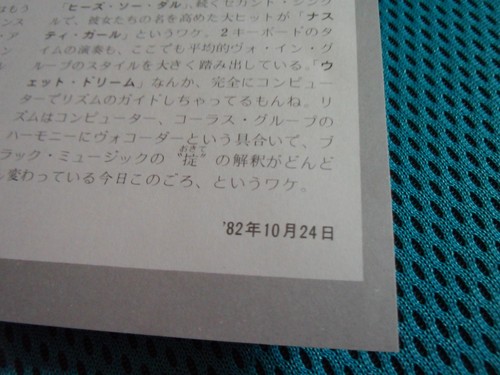 はもう 「ヒーズ・ソー・ダル」、続くセカンド・シング
ンスル ルで、彼女たちの名を高めた大ヒットが「ナス
・ア ティ・ガール」というワケ。2キーボードのタ
イン イムの演奏も、ここでも平均的ヴォ・イン・グ
ループのスタイルを大きく踏み出している。「ウ
ェット・ドリーム」なんか、完全にコンピュー
ターでリズムのガイドしちゃってるもんね。リ
ズムはコンピューター、コーラス・グループの
ハーモニーにヴォコーダーという具合いで、ブ
ラック・ミュージックの〝掟〟の解釈がどんど
おきて
ん変わっている今日このごろ、というワケ。
'82年10月24日